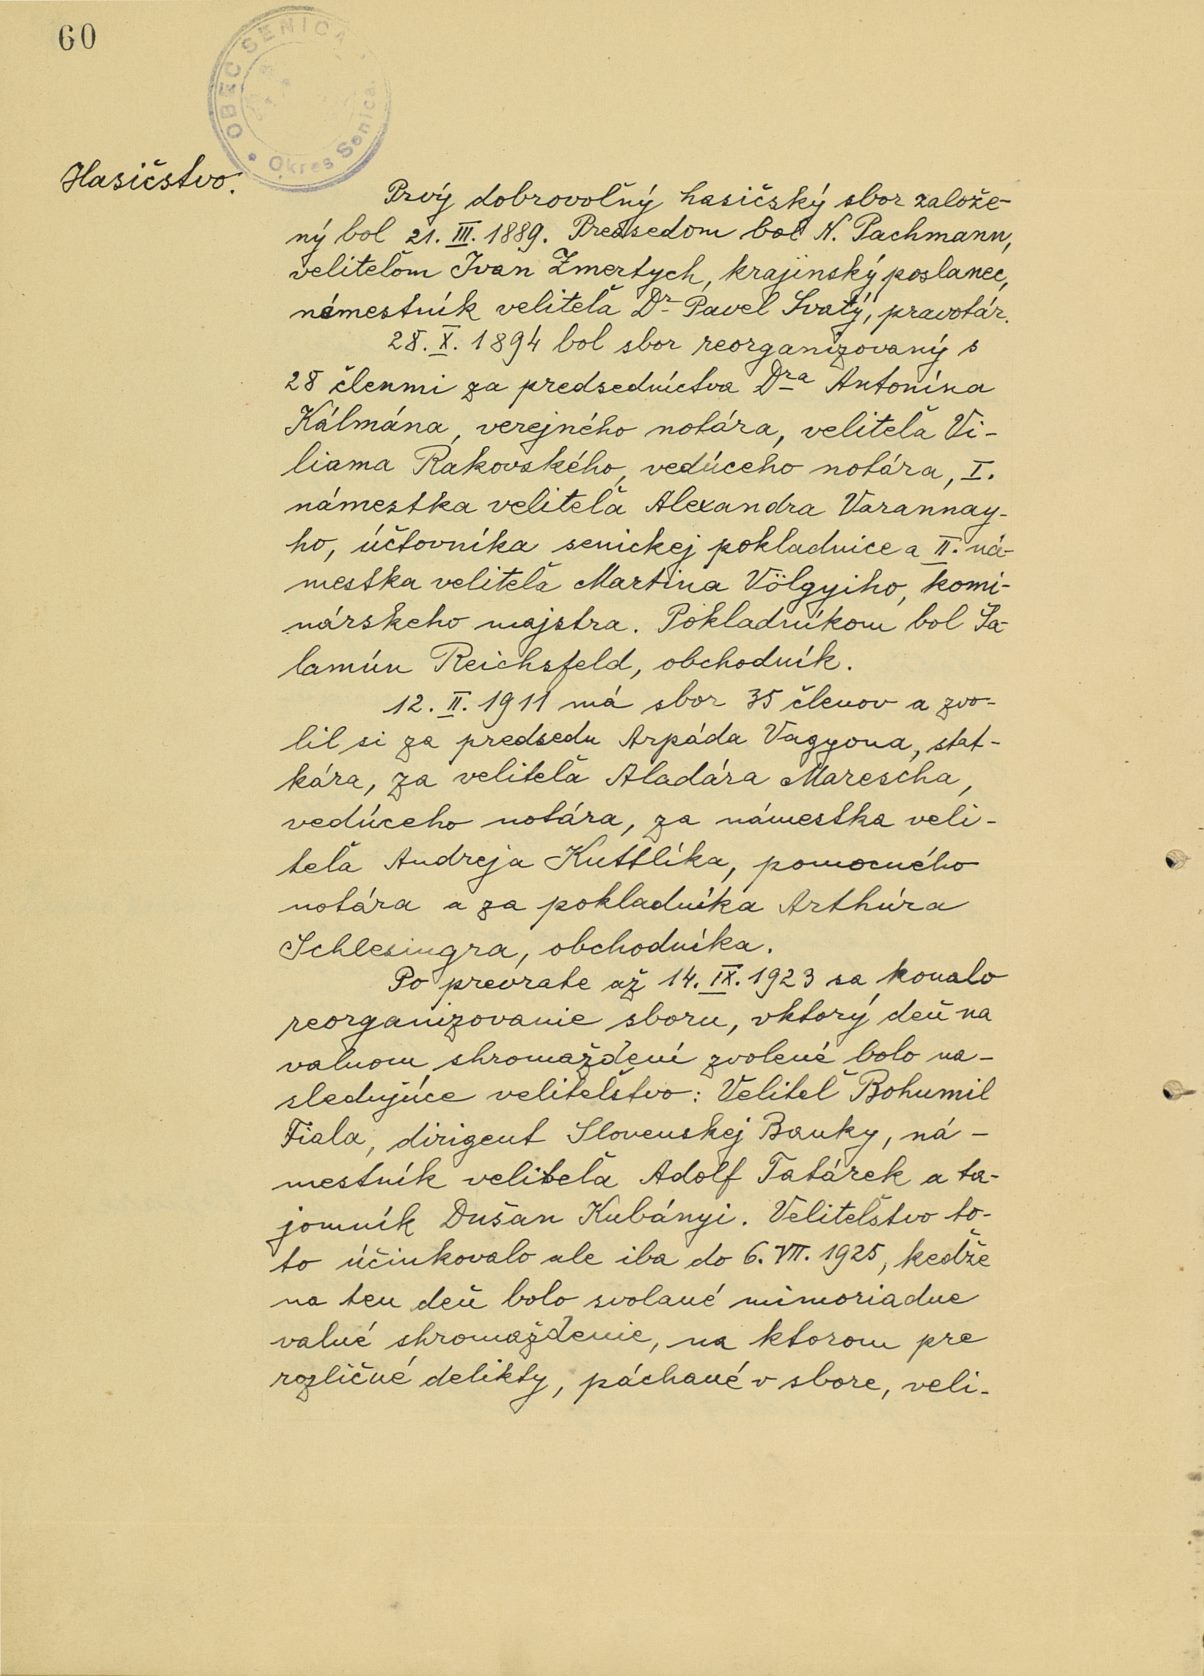 60
OBEC SENICA
Okres Senica.
Hasičstvo.
Prvý dobrovoľný hasičský sbor založe-
ný bol 21. III. 1889. Predsedom bol N. Pachmann,
veliteľom Ivan Zmertych, krajinský poslanec,
námestník veliteľa Dr Pavel Svatý, pravotár.
28. X. 1894 bol sbor reorganizovaný s
28 členmi za predsedníctva Dra Antonína
Kálmána, verejného notára, veliteľa Vi-
liama Rakovského, vedúceho notára, I.
námestka veliteľa Alexandra Varannay-
ho, účtovníka senickej pokladnice a II. ná-
mestka veliteľa Martina Völgyiho, komi-
nárskeho majstra. Pokladníkom bol Ša-
lamún Reichsfeld, obchodník.
12. II. 1911 má sbor 35 členov a zvo-
lil si za predsedu Arpáda Vagyona, stat-
kára, za veliteľa Aladára Marescha,
vedúceho notára, za námestka veli-
teľa Andreja Kuttlíka, pomocného
notára a za pokladníka Arthúra
Schlesingra, obchodníka.
Po prevrate až 14. IX. 1923 sa konalo
reorganizovanie sboru, vktorý deň na
valnom shromaždení zvolené bolo na-
sledujúce veliteľstvo: Veliteľ Bohumil
Fiala, dirigent Slovenskej Banky, ná-
mestník veliteľa Adolf Tatárek a ta-
jomník Dušan Kubányi. Veliteľstvo to-
to účinkovalo ale iba do 6. VII. 1925, keďže
na ten deň bolo svolané mimoriadne
valné shromaždenie, na ktorom pre
rozličné delikty, páchané v sbore, veli-